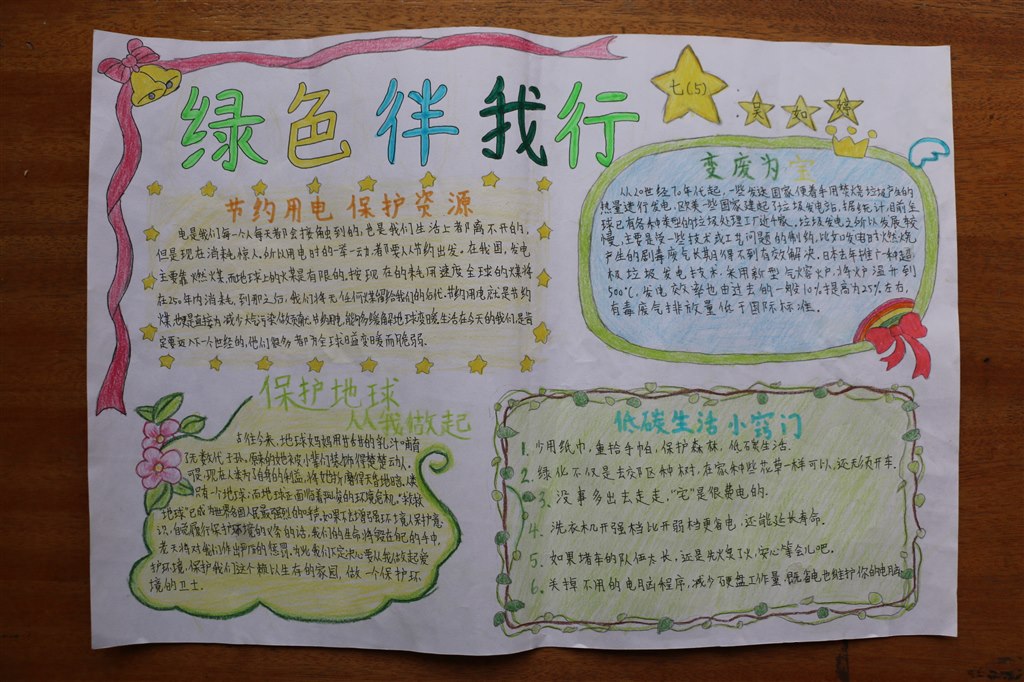 绿色伴我行
七(5)
吴如婷
节约用电 保护资源
电是我们每一个人每天都会接触到的,也是我们生活上都离不开的,
但是现在消耗惊人,所以用电时的一举一动,都要从节约出发,在我国,发电
主要靠燃煤,而地球上的水煤是有限的,按现在的耗用速度全球的煤将
在250年内消耗,到那之后,我们将无任何煤留给我们的后代,节约用电就是节约
煤,也更是直接为减少大气污染做贡献,节约用电,能够缓解地球变暖生活在今天的我们,是肯
定要迈入下一个世纪的,他们很多都为全球日益变暖而脆弱.
变废为宝
从20世纪70年代起,一些发达国家便着手用焚烧垃圾产生的
热量进行发电,欧美一些国家建起了垃圾发电站,据统计,目前全
球已有各种类型的垃圾处理工厂近千家,垃圾发电之所以发展较
慢,主要是受一些技术或工艺问题的制约,比如发电时燃烧
产生的剧毒废气长期得不到有效解决,日本去年推广一种超
级垃圾发电技术,采用新型气熔炉,将炉温升到
500℃,发电效率也由过去的一般10%提高为25%左右,
有毒废气排放量低于国际标准.
保护地球
从我做起
古往今来,地球妈妈用甘甜的乳汁哺育
了无数代子孙.原来的她被小辈们装饰得楚楚动人.
可是,现在人类为了自身的利益,将她折磨得天昏地暗.人类
只有一个地球;而地球正面临着严峻的环境危机."救救
地球"已成为世界各国人民最强烈的呼声.如果不增强环境人保护意
识,自觉履行保护环境的义务的话,我们的生命将毁在自己的手中,
老天将对我们作出严厉的惩罚.为此我们下定决心要从我做起爱
护环境,保护我们这个赖以生存的家园,做一个保护环
境的卫士.
低碳生活小窍门
1. 少用纸巾,重拾手帕,保护森林,低碳生活.
2. 绿化不仅是去郊区种树,在家种些花草一样可以,还无须开车.
3. 没事多出去走走,"宅"是很费电的.
4. 洗衣机开强档比开弱档更省电,还能延长寿命.
5. 如果堵车的队伍太长,还是先熄了火,安心等会儿吧.
6. 关掉不用的电脑程序,减少硬盘工作量,既省电也维护你的电脑.